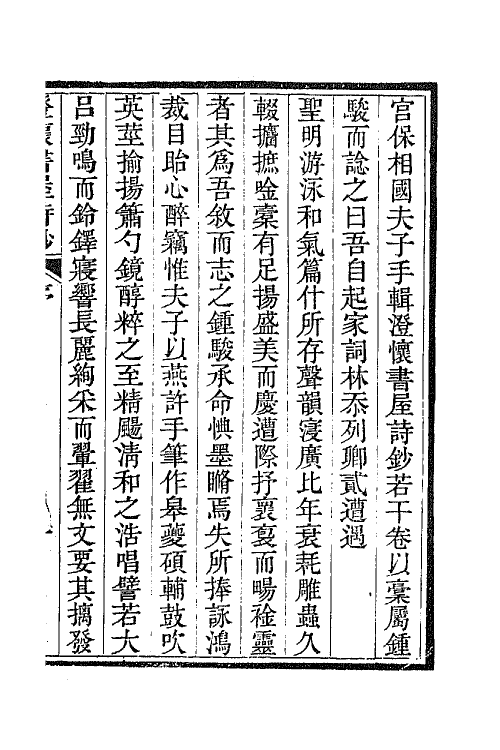 宮保相國夫子手輯澄懷書屋詩鈔若干卷以稾屬鍾
駿而諗之曰吾自起家詞林忝列卿貳遭遇
聖明游泳和氣篇什所存聲韻寖廣比年衰耗雕蟲久
輟攟摭唫稾有足揚盛美而慶遭際抒襄裒而暢襟靈
者其為吾敘而志之鍾駿承命㥏墨瞻焉失所捧詠鴻
裁目眙心醉竊惟夫子以燕許手筆作皋夔碩輔鼓吹
英莖揄揚簫勺鏡醇粹之至精颺淸和之浩唱譬若大
呂勁鳴而鈴鐸寢響長麗絢采而翬翟無文要其摛發
澄懷書屋詩鈔
序